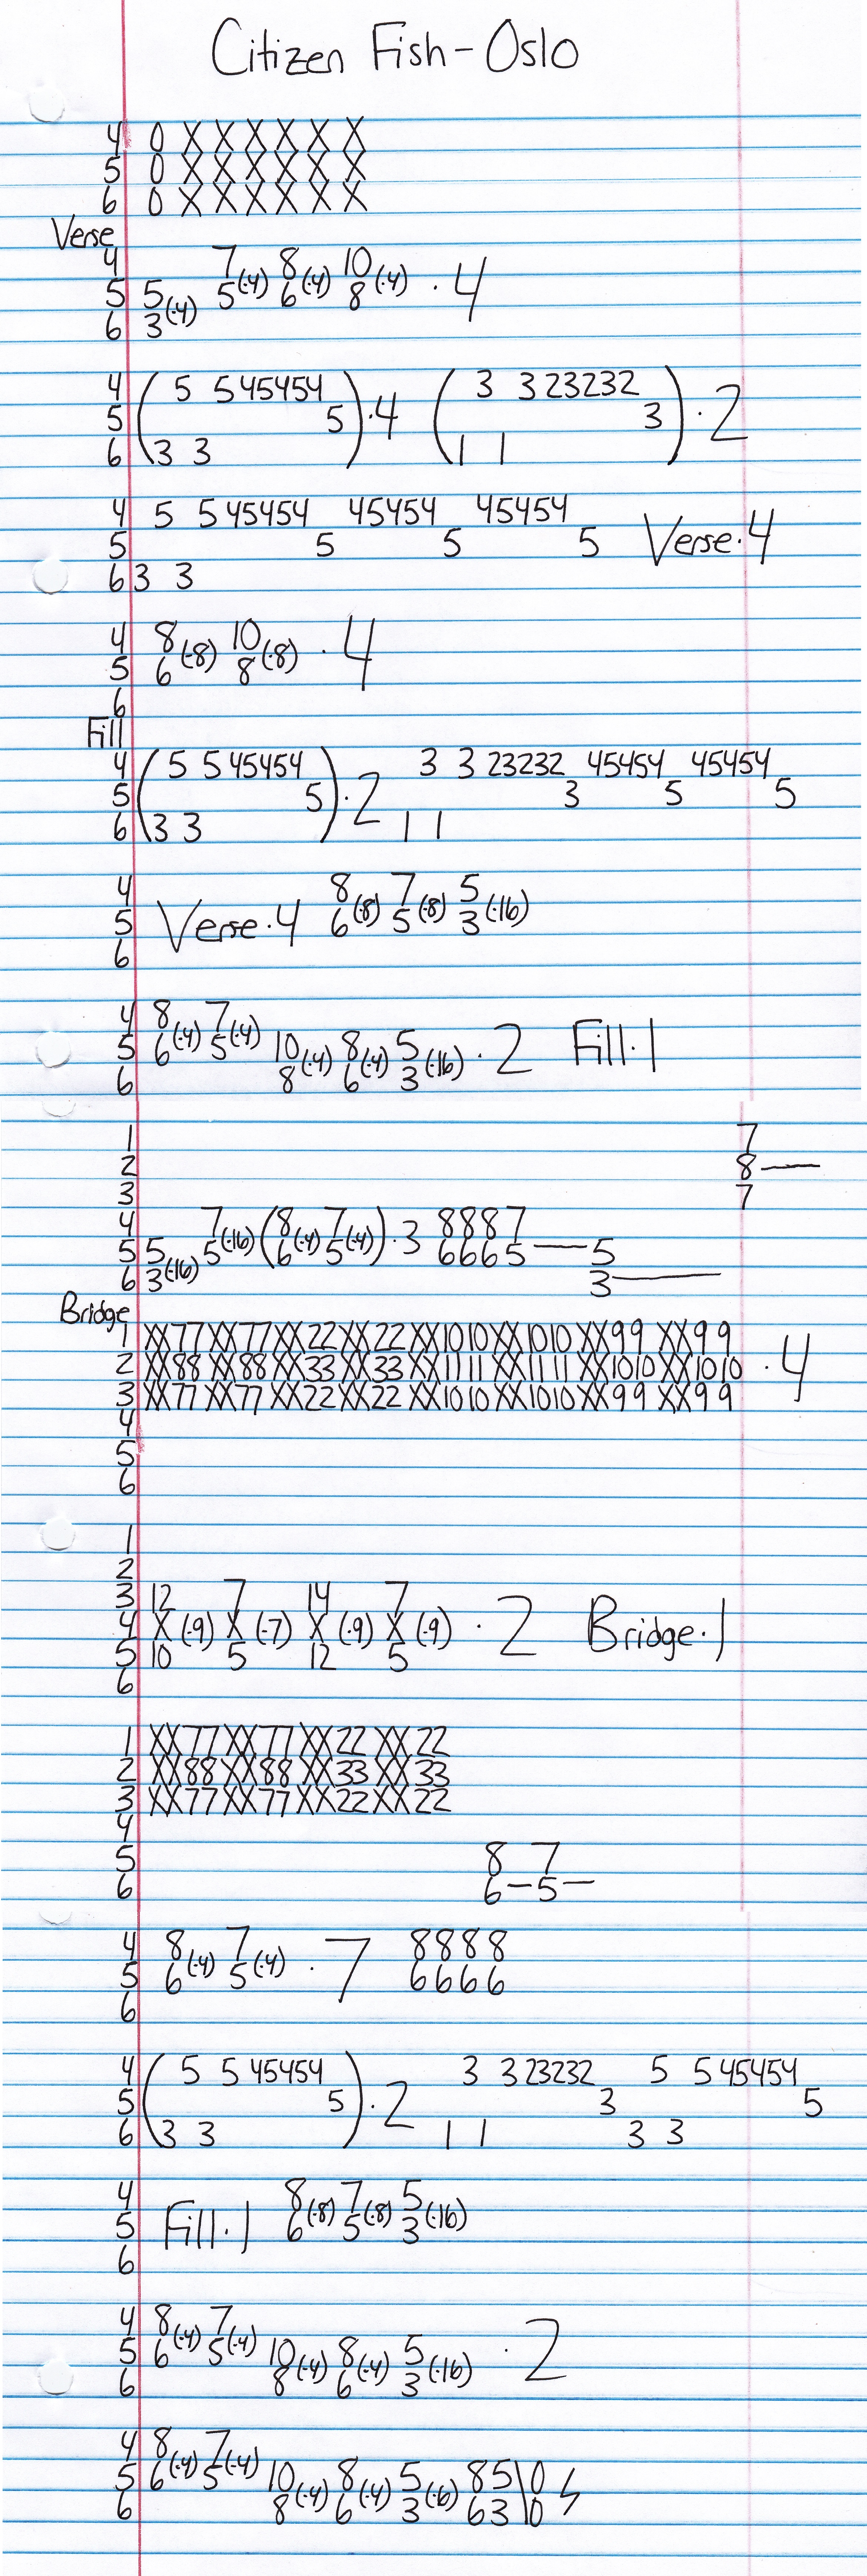 Citizen Fish - Oslo
4 0 X X X X X X
5 0 X X X X X X
6 0 X X X X X X
Verse
4 7 8 10
5 5(·4) 5(·4) 6(·4) 8(·4) ·4
6 3
4 ( 5 5 45454 ( 3 3 23232
5 5 )·4 3 )·2
6 3 3 1 1
4 5 5 45454 45454 45454
5 5 5 5 Verse·4
6 3 3
4 8 10
5 6(·8) 8(·8) ·4
6
Fill
4 ( 5 5 45454 3 3 23232 45454 45454
5 5 )·2 3 5 5
6 3 3 1 1
4 8 7 5
5 Verse·4 6(·8) 5(·8) 3(·16)
6
4 8 7
5 6(·4) 5(·4) 10(·4) 8(·4) 5(·16) ·2 Fill·1
6 8 6 3
1 7
2 8—
3 7
4 7 (8 7 8 8 8 7
5 5 5(·16) 6(·4) 5(·4))·3 6 6 6 5— 5
6 3(·16) 3—
Bridge
1 XX77 XX77 XX22 XX22 XX1010 XX1010 XX99 XX99
2 XX88 XX88 XX33 XX33 XX1111 XX1111 XX1010 XX1010 ·4
3 XX77 XX77 XX22 XX22 XX1010 XX1010 XX99 XX99
4
5
6
1
2
3 12 7 14 7
4 X(·9) X(·7) X(·9) X(·9) ·2 Bridge·1
5 10 5 12 5
6
1 XX77 XX77 XX22 XX22
2 XX88 XX88 XX33 XX33
3 XX77 XX77 XX22 XX22
4
5 8 7
6 6—5—
4 8 7 8 8 8 8
5 6(·4) 5(·4) ·7 6 6 6 6
6
4 ( 5 5 45454 3 3 23232 5 5 45454
5 5 )·2 3 5
6 3 3 1 1 3 3
4 8 7 5
5 Fill·1 6(·8) 5(·8) 3(·16)
6
4 8 7
5 6(·4) 5(·4) 10 8 5 ·2
6 8(·4) 6(·4) 3(·16)
4 8 7
5 6(·4) 5(·4) 10 8 5 8 5 \ 0
6 8(·4) 6(·4) 3(·6) 6 3 \ 0